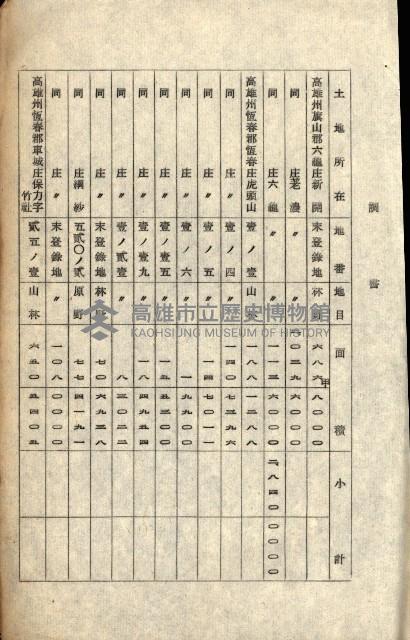 調書
土地所在 地番 地目 面積 小計
高雄州旗山郡六龜庄新開 未登錄地 林野 六八六八〇〇〇
同 庄荖濃 〃 〃
同 庄六龜 〃 〃 一一二六〇〇〇 二八四〇〇〇〇〇
高雄州恆春郡恆春庄虎頭山 壹ノ壹 山 八八一二八八
同 庄 〃 壹ノ四 〃 一四〇七三九六
同 庄 〃 壹ノ五 〃 一四七〇一一
同 庄 〃 壹ノ六 〃 一九九〇〇
同 庄 〃 壹ノ一五 〃 一五五三〇〇
同 庄 〃 壹ノ一九 〃 一八四九五四
同 庄 〃 壹ノ貳壹 〃 八三〇二二
同 庄 〃 未登錄地 林野 七〇六九三八
同 庄網紗 五貳〇ノ貳 原野 七七四一九一
同 庄 〃 未登錄地 〃 一〇八〇〇〇〇
高雄州恆春郡車城庄保力字竹社 貳五ノ壹 山林 六五〇五四〇五
高雄市立歷史博物館
KAOHSIUNG MUSEUM OF HISTORY